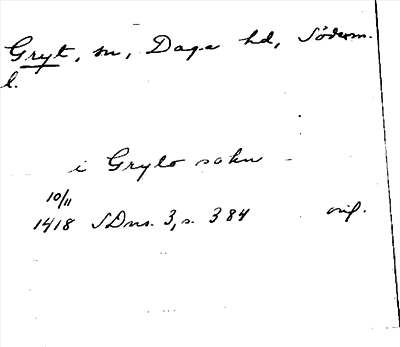 Gryt, sn, Daga hd, Söderm.
l.
i Grylo sokn
10/11
1418 SDns. 3, s. 384 orig.